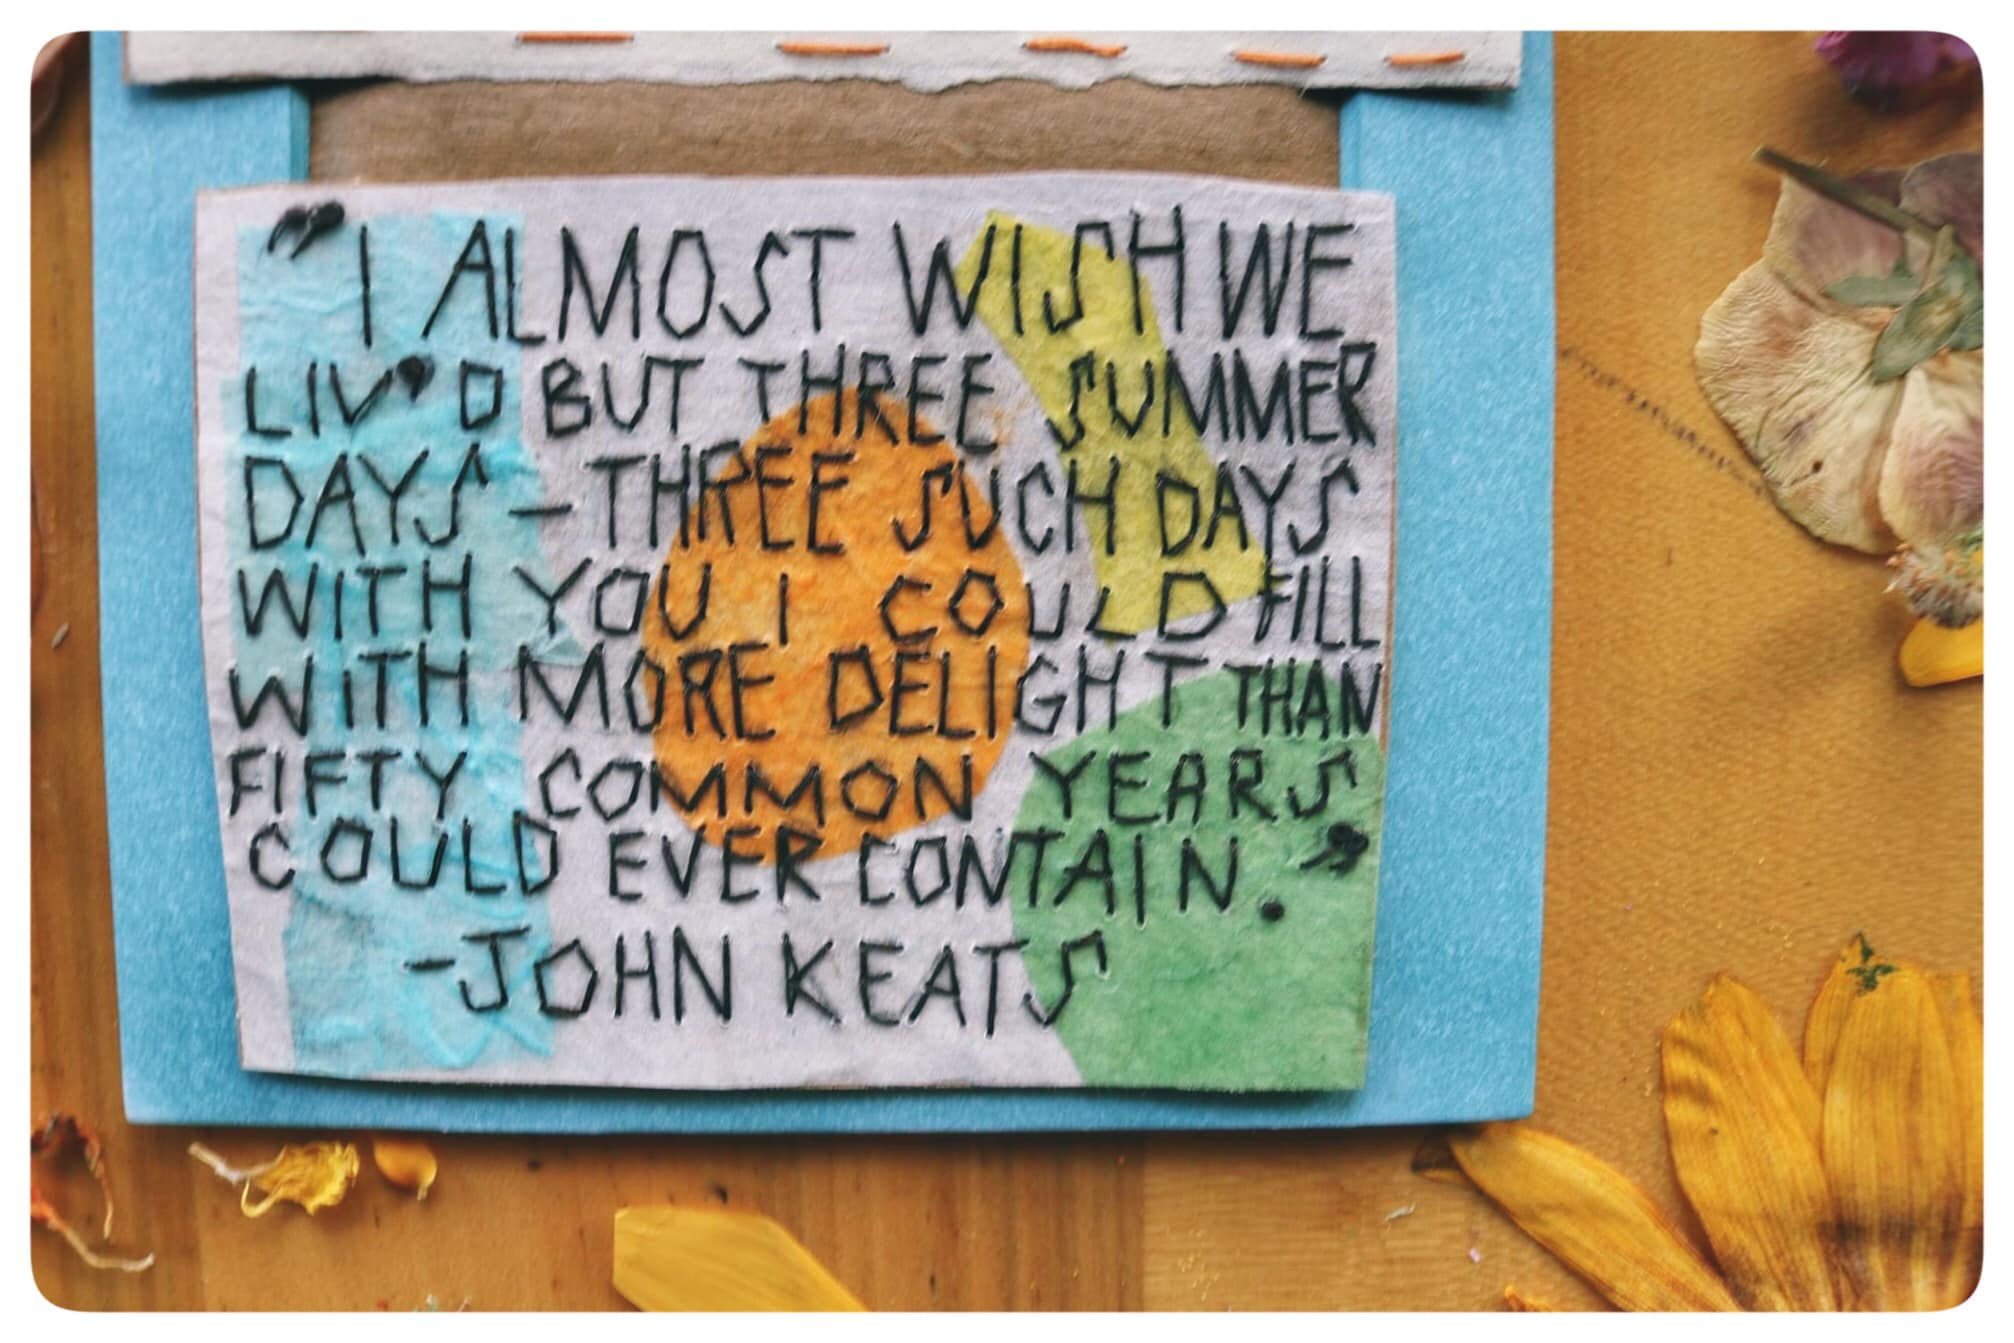 "I ALMOST WISH WE
LIV'D BUT THREE SUMMER
DAYS - THREE SUCH DAYS
WITH YOU I COULD FILL
WITH MORE DELIGHT THAN
FIFTY COMMON YEARS
COULD EVER CONTAIN."
-JOHN KEATS